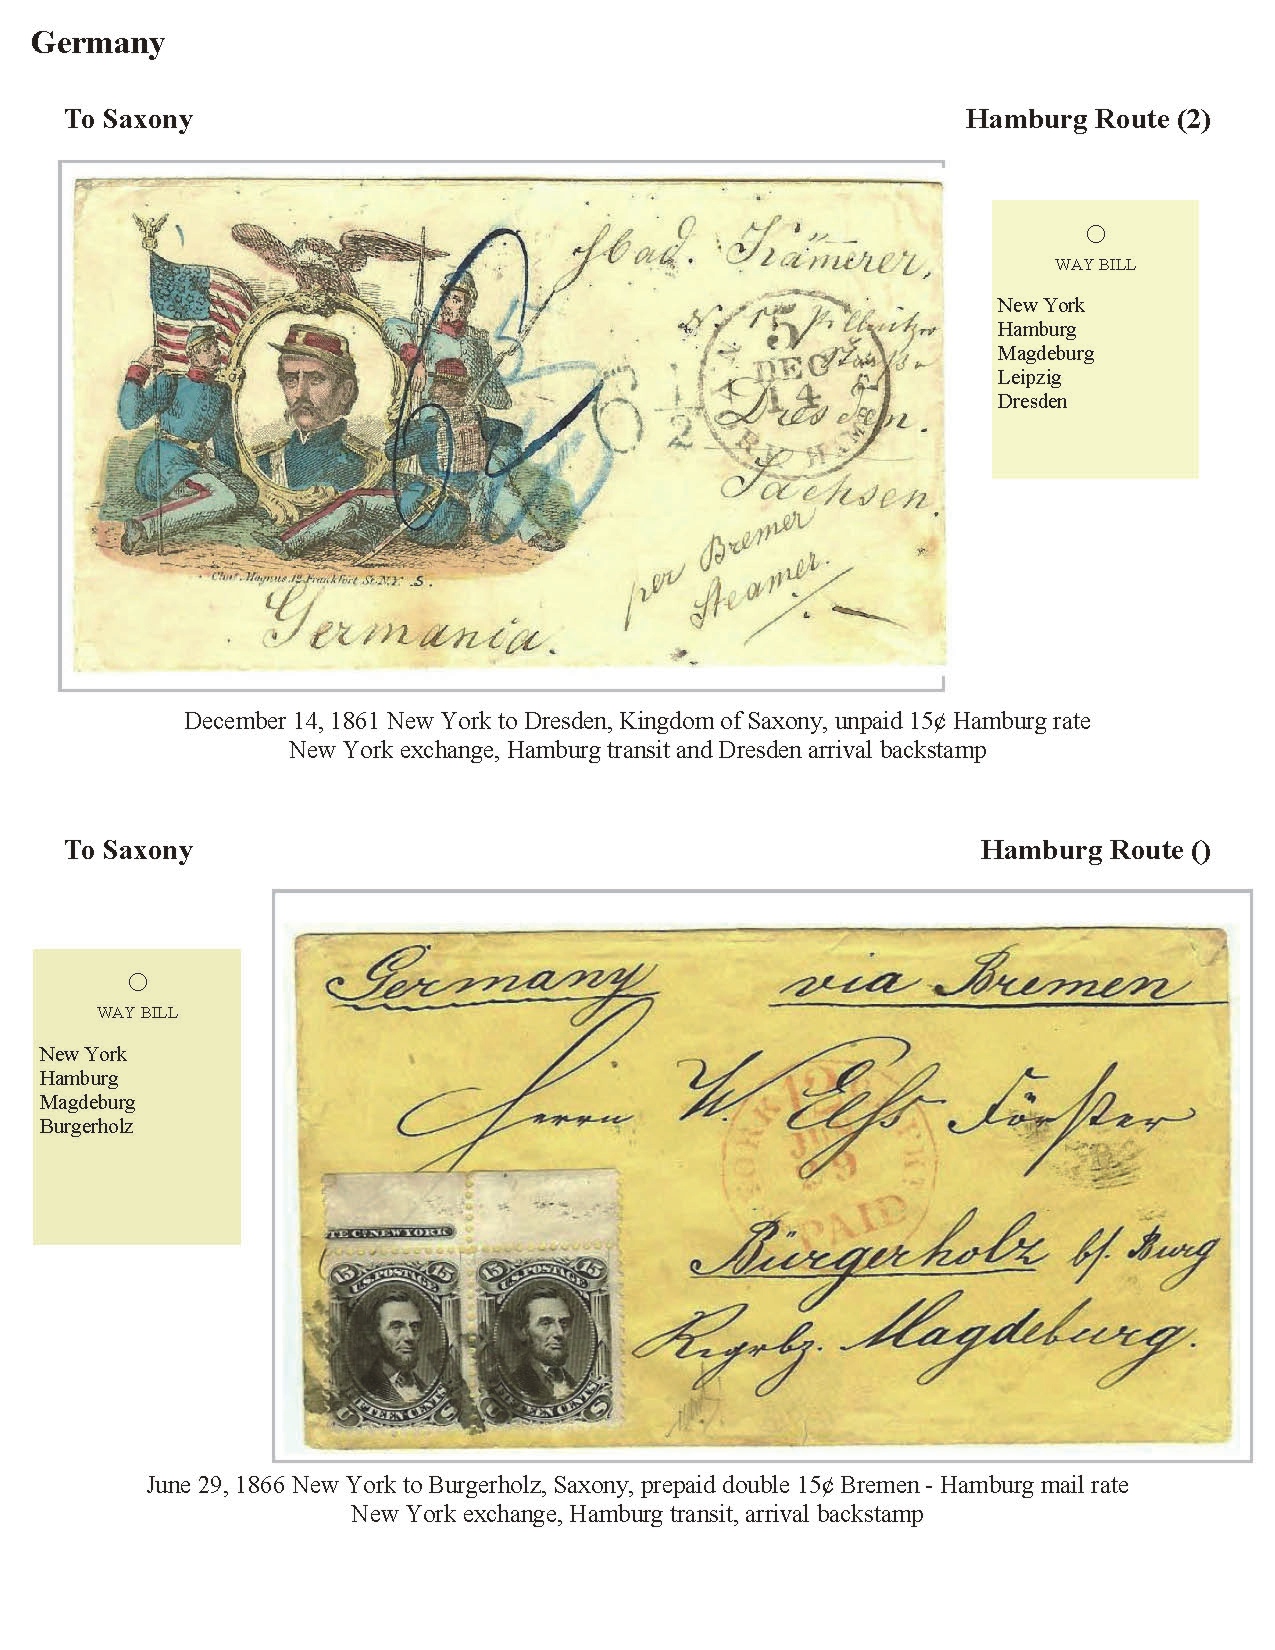 Germany
To Saxony
Hamburg Route (2)
Mad. Kämerer,
N. 17 Pillnitzer
5
DEC
14
Dresden.
6 1/2
Sachsen.
per Bremer
Steamer.
Chas. Magnus, 12 Frankfort St. N.Y. .S.
Germania.
WAY BILL
New York
Hamburg
Magdeburg
Leipzig
Dresden
December 14, 1861 New York to Dresden, Kingdom of Saxony, unpaid 15¢ Hamburg rate
New York exchange, Hamburg transit and Dresden arrival backstamp
To Saxony
Hamburg Route ()
WAY BILL
New York
Hamburg
Magdeburg
Burgerholz
Germany via Bremen
Herrn W. Förster
12
29
PAID
Bürgerholz bf. Burg
Regrbz. Magdeburg.
TE CO. NEW YORK
15 U.S. POSTAGE. 15
FIFTEEN CENTS
U S
15 U.S. POSTAGE. 15
FIFTEEN CENTS
U S
June 29, 1866 New York to Burgerholz, Saxony, prepaid double 15¢ Bremen - Hamburg mail rate
New York exchange, Hamburg transit, arrival backstamp